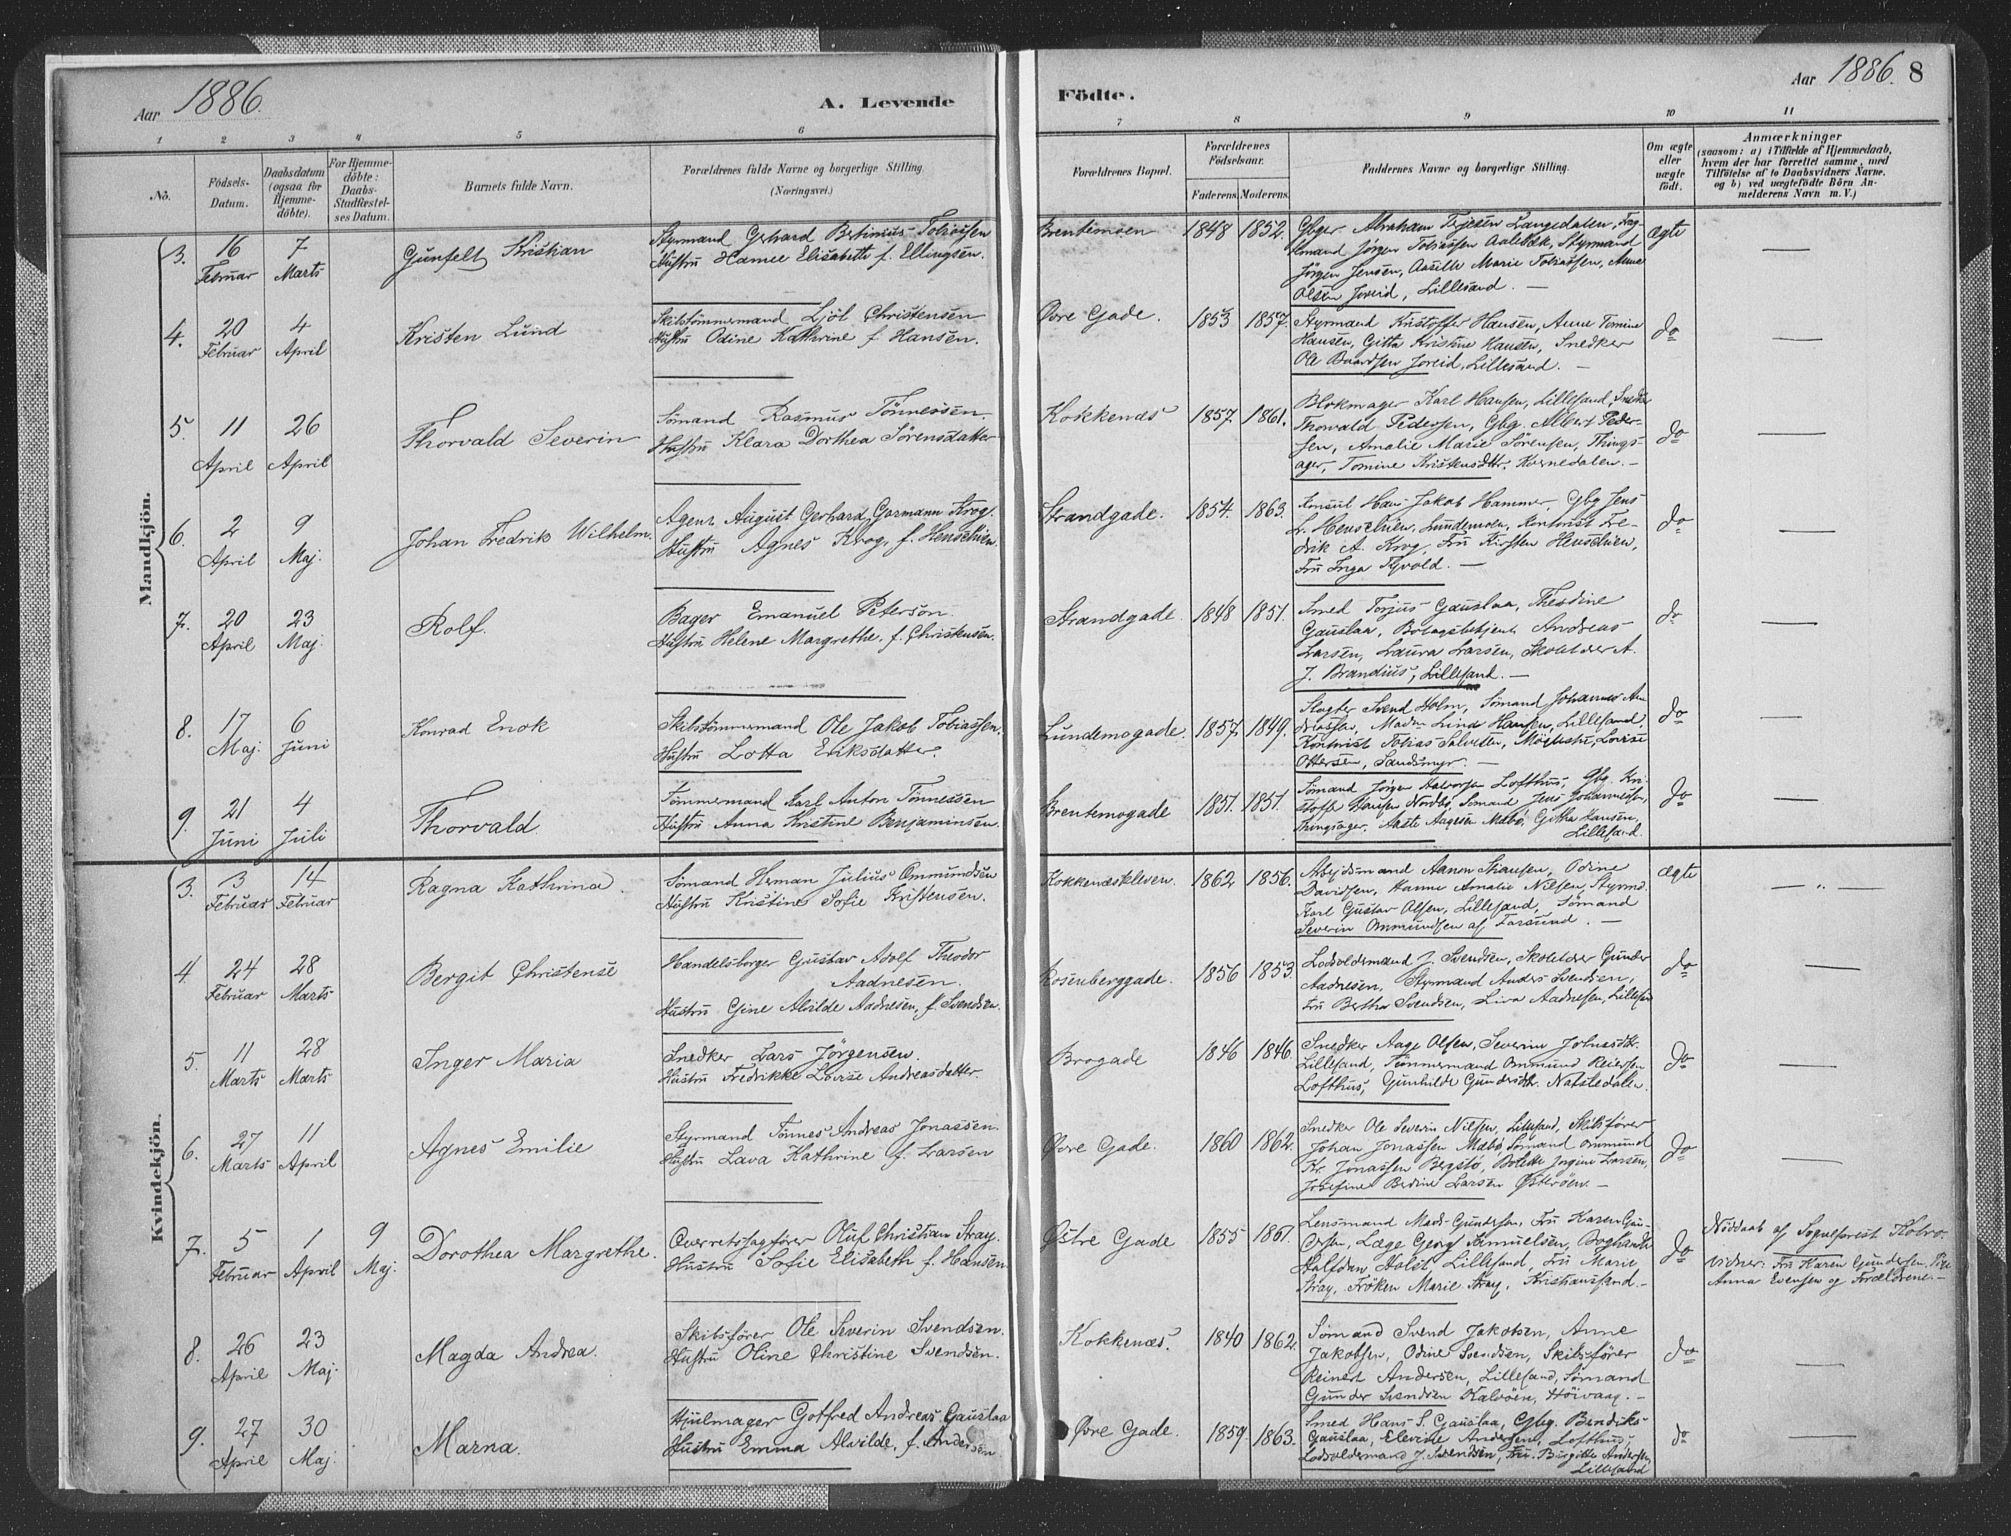 Aar 1886.
A. Levende
Födte.
Aar 1886. 8
1 2 3 4 5 6 7 8 9 10 11
No.
Födsels-Datum.
Daabsdatum (ogsaa for Hjemme-döbte).
For Hjemme-döbte: Daabs-Stadfæstel-ses Datum.
Barnets fulde Navn.
Forældrenes fulde Navne og borgerlige Stilling
(Næringsvei.)
Forældrenes Bopæl.
Forældrenes Födselsaar.
Faderens. Moderens.
Faddernes Navne og borgerlige Stilling.
Om ægte eller uægte födt.
Anmærkninger
(saasom: a) i Tilfælde af Hjemmedaab,
hvem der har forrettet samme, med
Tilföielse af to Daabsvidners Navne,
og b) ved uægtefödte Börn An-
melderens Navn m. V.)
Mandkjön.
3. 16 Februar 7 Marts Gunfelt Kristian
Styrmand Gerhard Bertinius Tobiassen
Hustru Hamee Elisabeth f. Ellingsen.
Brentemoen 1848 1852.
Gbger Abraham Terjesen Langedalen,
Jörgen Tobiassen Aalebæk, Styrmand
Jörgen Jensen, Aasille Marie Tobiassen, Anne
Olsen Joreid, Lillesand. —
ægte —
4. 20 Februar 4 April Kristen Lund
Skibstömmermand Ljöl Christensen
Hustru Odine Kathrine f Hansen.
Övre Gade. 1853 1857.
Styrmand Kristoffer Hansen, Anne Tomine
Hansen, Gitta Kristine Hansen, Snedker
Ole Baardsen Joreid, Lillesand. —
do —
5. 11 April 26 April Thorvald Severin
Sömand Rasmus Tönnessen.
Hustru Klara Dorthea Sörensdatter
Kokkenæs 1857. 1861.
Blokmager Karl Hansen, Lillesand,
Thorvald Pedersen, Gbg. Albert Peder-
sen, Amalie Marie Sörensen, Things-
ager, Tomine Kristensdtr. Kornedalen. —
do —
6. 2 April 9 Maj. Johan Fredrik Wilhelm.
Agent August Gerhard Garmann Krog.
Hustru Agnes Krog, f. Henschien.
Strandgade. 1854. 1863.
Konsul Hans Jakob Hammer, Gbg Jens
L. Henschien, Lundemoen, Kontorist Fre-
drik A. Krog, Fru Kirsten Henschien,
Fru Inga Tyvold. —
do —
7. 20 April 23 Maj. Rolf.
Bager Emanuel Peterson.
Hustru Helene Margrethe, f. Christensen.
Strandgade. 1848 1851.
Smed Torjus Gauslaa, Theodine
Gauslaa, Andreas
Larsen, Laura Larsen, Skoleder A.
J. Brandius, Lillesand. —
do —
8. 17 Maj. 6 Juni Konrad Enok
Skibstömmermand Ole Jakob Tobiassen.
Hustru Lotta Eriksdatter.
Lundemogade. 1857. 1849.
Slagter Svend Holm, Sömand Johannes An-
dreassen, Madm Linde Hansen, Lillesand.
Kontorist Tobias Salvesen, Lovise
Ottersen, Sandsmyr. —
do —
9. 21 Juni 4 Juli Thorvald
Tömmermand Karl Anton Tönnessen
Hustru Anna Kristine Benjaminsen.
Brentemogade 1851. 1851.
Sömand Jörgen Halvorsen Lofthus, Gbg. Kri-
stoff Hansen Nordbö, Sömand Jens Johannessen,
Thingsager, Aaste Aagesen Mæbö, Gitta Hansen,
Lillesand.
do —
Kvindekjön.
3. 3 Februar 14 Februar Ragna Kathrina.
Sömand Herman Julius Ommundsen
Hustru Kristine Sofie Kristensen.
Kokkenæskleven. 1862 1856.
Arbejdsmand Aanon Hansen, Odine
Davidsen, Hanne Amalie Nilsen, Styrmd.
Karl Gustav Olsen, Lillesand, Sömand
Severin Ommundsen af Farsund. —
ægte — „ —
4. 24 Februar 28 Marts Bergit Christense
Handelsborger Gustav Adolf Theodor
Aadnesen.
Hustru Gine Alvilde Aadnesen, f. Svendsen.
Rosenberggade. 1856 1853.
Lodsoldermand J. Svendsen, Skoleder Gunder
Aadnesen, Styrmand Anders Svendsen,
Fru Berthe Svendsen, Liva Aadnesen, Lillesand
do —
5. 11 Marts 28 Marts Inger Maria
Snedker Lars Jörgensen.
Hustru Fredrikke Lovise Andreasdatter.
Brogade 1846 1846.
Snedker Aage Olsen, Severine Johnsdtr.
Lillesand, Tömmermand Ommund Reiersen
Lofthus, Gunhilde Gundersdtr. Natstedalen.
do —
6. 27 Marts 11 April Agnes Emilie
Styrmand Tönnes Andreas Jonassen.
Hustru Lava Kathrine f. Larsen
Övre Gade. 1860 1862.
Snedker Ole Severin Nilsen, Lillesand, Skibsförer
Johan Jonassen Mæbö, Sömand Ommund
Kr. Jonassen Bergstö, Bolette Jörgine Larsen,
Josefine Berdine Larsen Österöen. —
do —
7. 5 Februar 1 April 9 Maj. Dorothea Margrethe.
Overretssagförer Oluf Christian Stray.
Hustru Sofie Elisabeth f. Hansen
Östre Gade 1855 1861.
Lensmand Mads Gundersen, Fru Karen Gun-
dersen, Læge Georg Samuelsen, Boghandler
Halfdan Holst, Lillesand, Fru Marie
Stray, Fröken Marie Stray, Kristiansand. —
do
Nöddaab af Sogneprest
Vidner: Fru Karen Gundersen,
Anna Evensen og Forældrene. —
8. 26 April 23 Maj. Magda Andrea.
Skibsförer Ole Severin Svendsen.
Hustru Oline Christine Svendsen.
Kokkenæs. 1840 1862.
Sömand Svend Jakobsen, Anne
Jakobsen, Odine Svendsen, Skibsförer
Reinert Andersen, Lillesand, Sömand
Gunder Svendsen Kalvöen, Höivaag. —
do —
9. 27 April 30 Maj. Marna.
Hjulmager Gotfred Andreas Gauslaa
Hustru Emma Alvilde, f. Andersen
Övre Gade. 1859 1863.
Smed Hans S. Gauslaa, Gbg. Bendiks
Gauslaa, Elevine Andersen, Lofthus,
Lodsoldermand J. Svendsen, Fru Birgitte Andersen,
Lillesand
do —